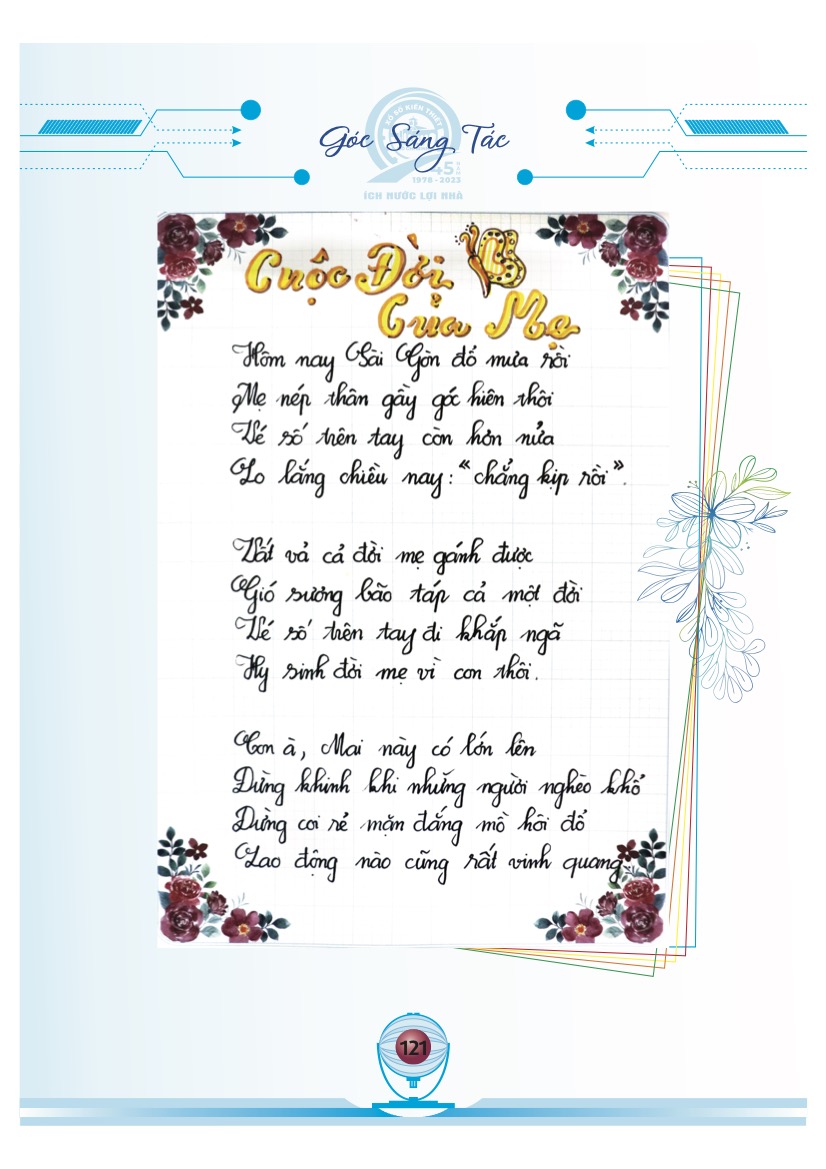 Góc Sáng Tác
XỔ SỐ KIẾN THIẾT
45 NĂM
1978 - 2023
ÍCH NƯỚC LỢI NHÀ
Cuộc Đời
Của Mẹ
Hôm nay Sài Gòn đổ mưa rồi
Mẹ nép thân gầy góc hiên thôi
Vé số trên tay còn hơn nửa
Lo lắng chiều nay: "chẳng kịp rồi".
Vất vả cả đời mẹ gánh được
Gió sương bão táp cả một đời
Vé số trên tay đi khắp ngã
Hy sinh đời mẹ vì con thôi.
Con à, Mai này có lớn lên
Đừng khinh khi những người nghèo khổ
Đừng coi rẻ mặn đắng mồ hôi đổ
Lao động nào cũng rất vinh quang.
121